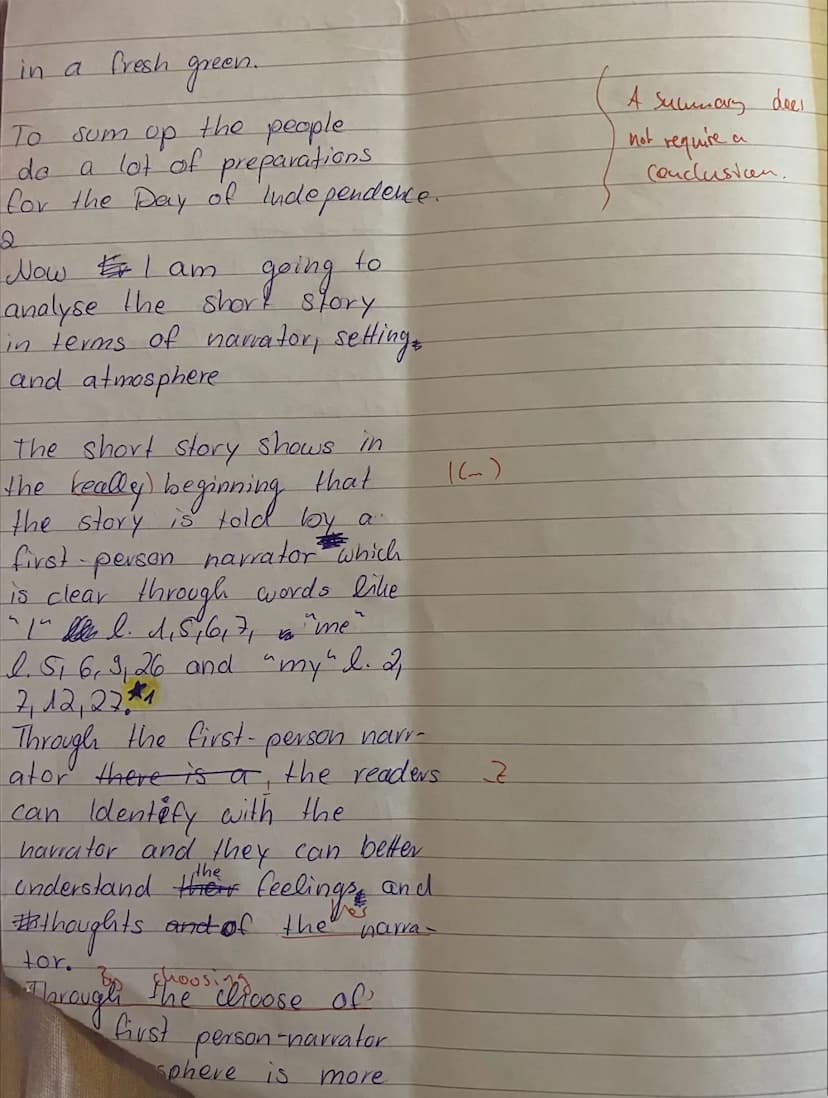 in a fresh green.
A summary does
not require a
conclusion.
To sum up the people
do a lot of preparations
for the Day of Independence.
2
Now I am going to
analyse the short story
in terms of narrator, setting
and atmosphere
The short story shows in
the (really) beginning that
1(-)
the story is told by a
first-person narrator which
is clear through words like
"I" l. 1,5,6,7, "me"
l. 5, 6, 9, 26 and "my" l. 2,
7, 12, 27. *1
Through the first-person narr-
ator there is a, the readers
Z
can Identify with the
narrator and they can better
the
understand their feelings and
thoughts and of the narra-
tor.
By choosing
Through the choose of
first person-narrator
sphere is more